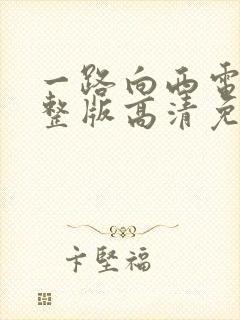 一路向西電
整版高清免
卞堅福